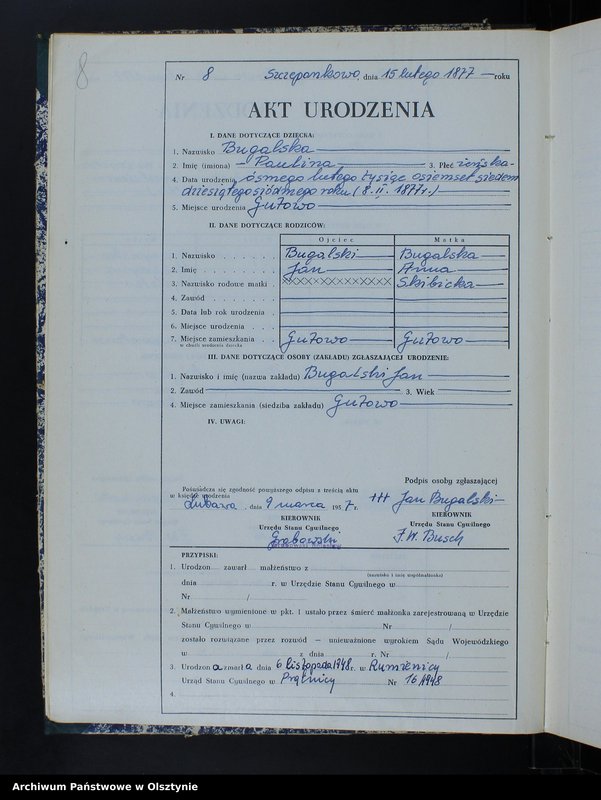 8
Nr 8 Szczepankowo, dnia 15 lutego 1877 roku
AKT URODZENIA
I. DANE DOTYCZĄCE DZIECKA:
1. Nazwisko Bugalska
2. Imię (imiona) Paulina 3. Płeć żeńska
4. Data urodzenia ósmego lutego tysiąc osiemset siedem
dziesiątego siódmego roku (8. II. 1877 r.)
5. Miejsce urodzenia Gutowo
II. DANE DOTYCZĄCE RODZICÓW:
Ojciec Matka
1. Nazwisko Bugalski Bugalska
2. Imię Jan Anna
3. Nazwisko rodowe matki Skibicka
4. Zawód
5. Data lub rok urodzenia
6. Miejsce urodzenia
7. Miejsce zamieszkania Gutowo Gutowo
w chwili urodzenia dziecka
III. DANE DOTYCZĄCE OSOBY (ZAKŁADU) ZGŁASZAJĄCEJ URODZENIE:
1. Nazwisko i imię (nazwa zakładu) Bugalski Jan
2. Zawód 3. Wiek
4. Miejsce zamieszkania (siedziba zakładu) Gutowo
IV. UWAGI:
Podpis osoby zgłaszającej
Poświadcza się zgodność powyższego odpisu z treścią aktu
w księdze urodzenia
+++ Jan Bugalski
Lubawa, dnia 9 marca 1957 r.
KIEROWNIK
Urzędu Stanu Cywilnego
Grabowski
KIEROWNIK
Urzędu Stanu Cywilnego
F. W. Busch
PRZYPISKI:
1. Urodzon zawarł małżeństwo z
(nazwisko i imię współmałżonka)
dnia r. w Urzędzie Stanu Cywilnego w
Nr /
2. Małżeństwo wymienione w pkt. 1 ustało przez śmierć małżonka zarejestrowaną w Urzędzie
Stanu Cywilnego w Nr /
zostało rozwiązane przez rozwód — unieważnione wyrokiem Sądu Wojewódzkiego
w z dnia r. Nr /
3. Urodzon a zmarł a dnia 6 listopada 1948 r. w Rumienicy
Urząd Stanu Cywilnego w Prątnicy Nr 16/1948
4.
Archiwum Państwowe w Olsztynie